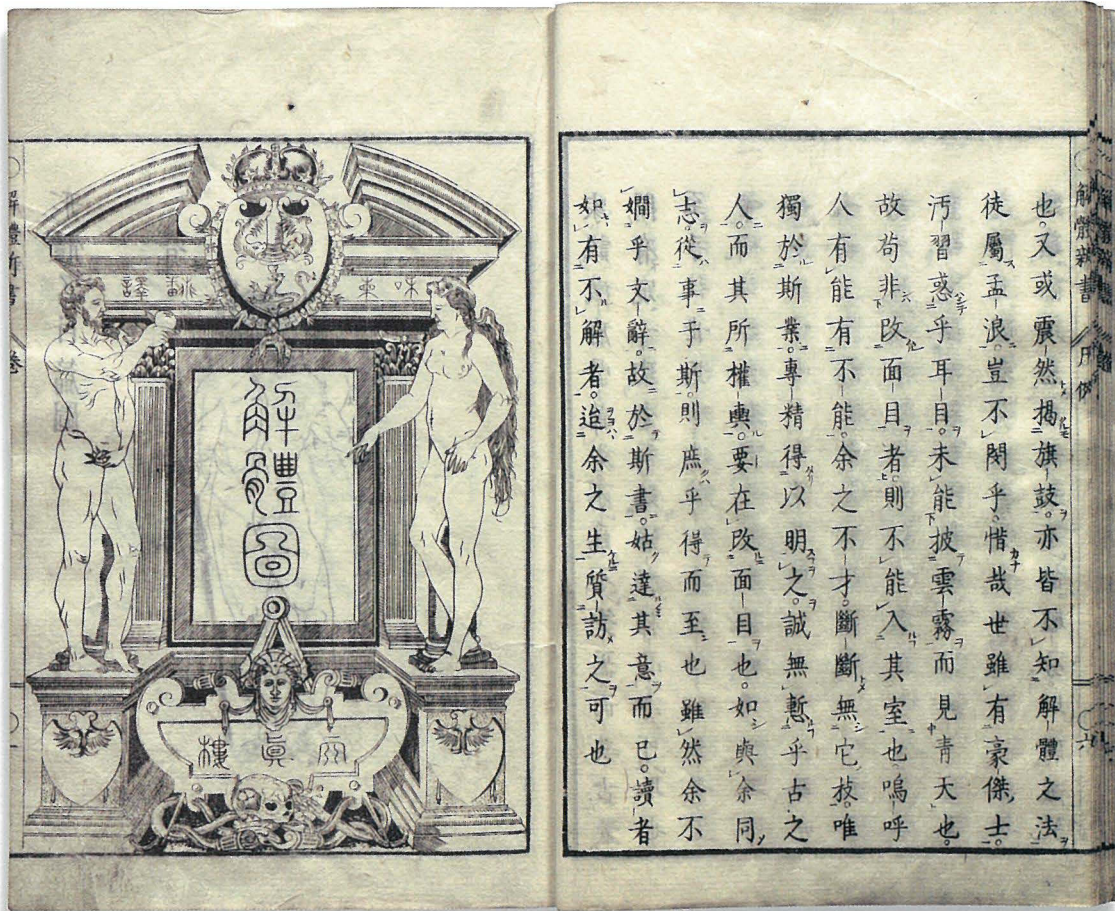 解體新書 凡例 六
也。又或震然揭旗鼓。亦皆不知解體之法
徒屬孟浪。豈不閔乎。惜哉世雖有豪傑士。
汚習惑乎耳目。未能披雲霧而見青天也。
故苟非改面目者。則不能入其室也嗚呼
人有能有不能。余之不才。斷斷無它技。唯
獨於斯業。專精得以明之。誠無慙乎古之
人。而其所權輿。要在改面目也。如與余同
志。從事于斯。則庶乎得而至也雖然余不
嫺乎文辭。故於斯書。姑達其意而已。讀者
如有不解者。迨余之生質訪之可也
解體圖
天眞樓
解體新書 卷